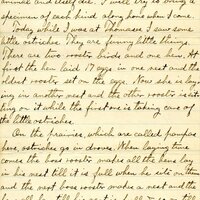 animal and itself die. I will try to bring a
specimen of each kind along home when I come.
Today while I was at Thomases I saw some
little ostriches. They are funny little things.
There are two roosters birds and one hen. At
first the hen laid 17 eggs in one nest and the
oldest rooster set on the eggs. Now she is lay-
ing in another nest and the other rooster is sit-
ting on it while the first one is taking care of
the little ostriches.
On the prairies, which are called pampas
here, ostriches go in droves. When laying time
comes the boss rooster makes all the hens lay
in his nest till it is full when he sits on them
and the next boss rooster makes a nest and the